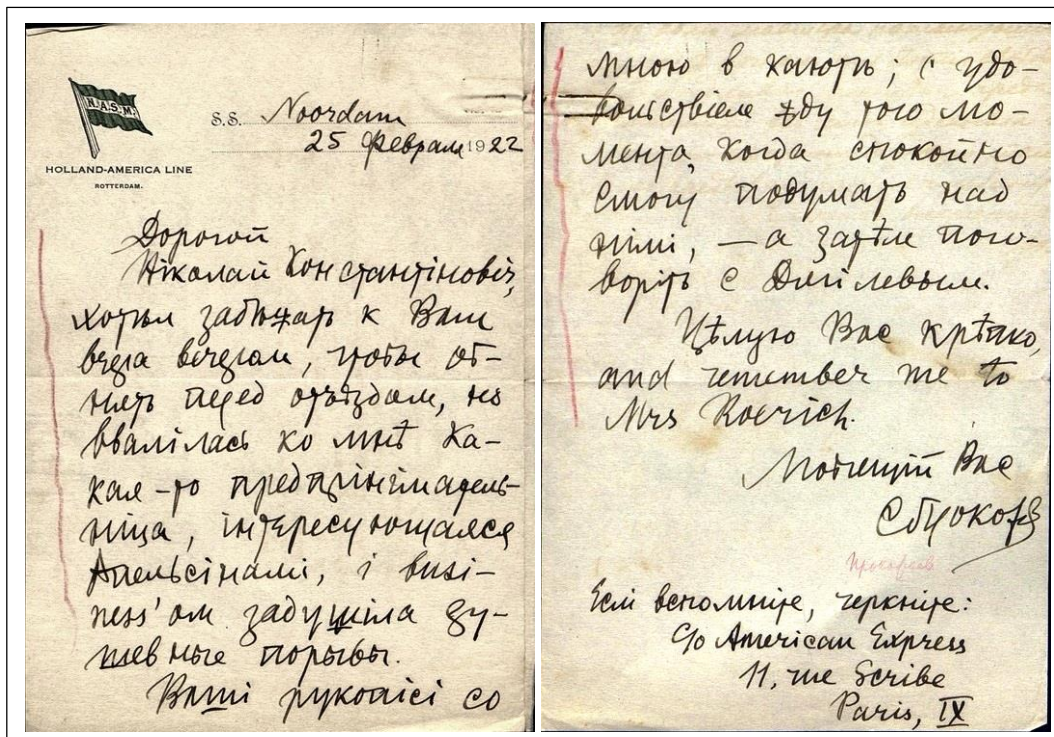 H.A.S.M.
HOLLAND-AMERICA LINE
ROTTERDAM.
S.S. Noordam
25 февраля 1922
Дорогой
Ніколай Константіновіч,
хотѣл забѣжать к Вам
вчера вечером, чтобы об-
нять перед отъѣздом, но
ввалілась ко мнѣ ка-
кая-то предпрініматель-
ніца, інтересующаяся
Апельсінамі, і busi-
ness'ом задушіла ду-
шевные порывы.
Ваші рукопісі со
мною в каютѣ; с удо-
вольствіем жду того мо-
мента, когда спокойно
смогу подумать над
німі, — а затѣм пого-
воріть с Дягілевым.
Цѣлую Вас крѣпко,
and remember me to
Mrs Roerich.
Любящій Вас
СПркфв
Прокофьев
Еслі вспомніте, черкніте:
c/o American Express
11, rue Scribe
Paris, IX